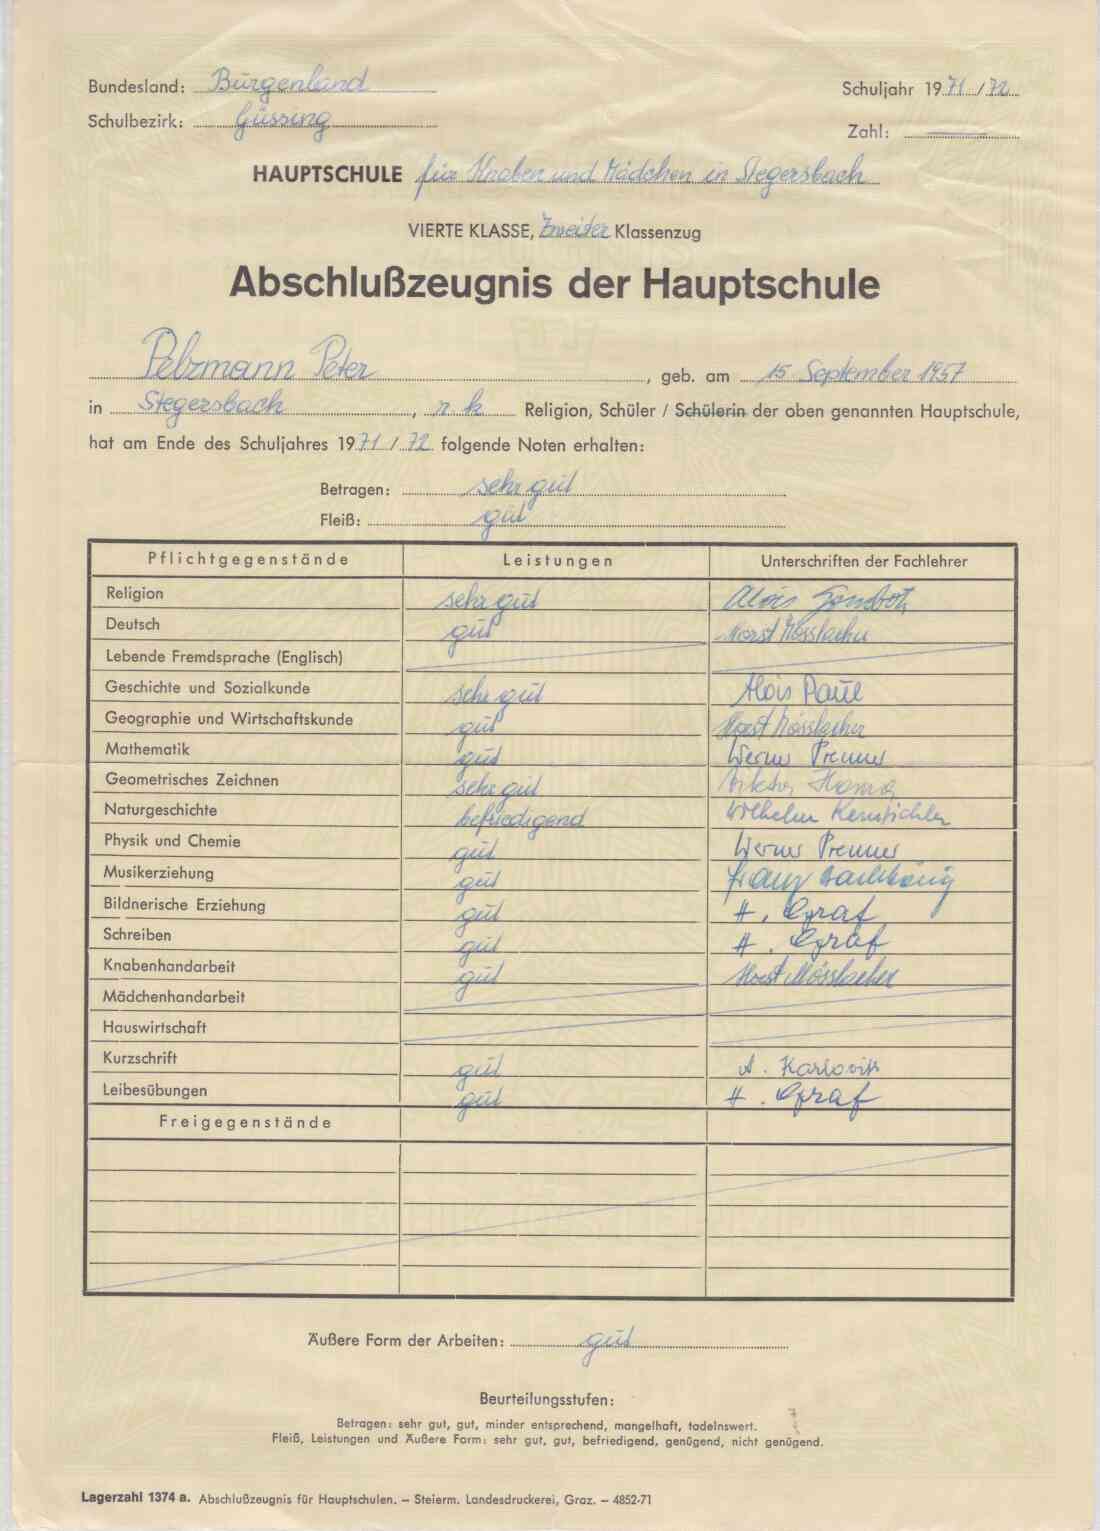 Bundesland: Burgenland Schuljahr 1971/72
Schulbezirk: Güssing Zahl: —
HAUPTSCHULE für Knaben und Mädchen in Stegersbach
VIERTE KLASSE, Zweiter Klassenzug
Abschlußzeugnis der Hauptschule
Pelzmann Peter, geb. am 15 September 1957
in Stegersbach, r. k. Religion, Schüler / Schülerin der oben genannten Hauptschule,
hat am Ende des Schuljahres 1971/72 folgende Noten erhalten:
Betragen: sehr gut
Fleiß: gut
Pflichtgegenstände Leistungen Unterschriften der Fachlehrer
Religion sehr gut Alois
Deutsch gut Horst Mösslacher
Lebende Fremdsprache (Englisch)
Geschichte und Sozialkunde sehr gut Alois Paul
Geographie und Wirtschaftskunde gut Horst Mösslacher
Mathematik gut Werner Prenner
Geometrisches Zeichnen sehr gut Viktor
Naturgeschichte befriedigend Wilhelm
Physik und Chemie gut Werner Prenner
Musikerziehung gut Franz
Bildnerische Erziehung gut H. Graf
Schreiben gut H. Graf
Knabenhandarbeit gut Horst Mösslacher
Mädchenhandarbeit
Hauswirtschaft
Kurzschrift gut A. Karlovits
Leibesübungen gut H. Graf
Freigegenstände
Äußere Form der Arbeiten: gut
Beurteilungsstufen:
Betragen: sehr gut, gut, minder entsprechend, mangelhaft, tadelnswert.
Fleiß, Leistungen und Äußere Form: sehr gut, gut, befriedigend, genügend, nicht genügend.
Lagerzahl 1374 a. Abschlußzeugnis für Hauptschulen. – Steierm. Landesdruckerei, Graz. – 4852-71